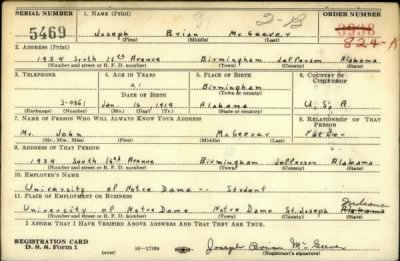 SERIAL NUMBER 1. NAME (Print) ORDER NUMBER
5469 Joseph Brian McGeever 3938
(First) (Middle) (Last) 824-A
2. ADDRESS (Print)
1934 South 16th Avenue Birmingham Jefferson Alabama
(Number and street or R. F. D. number) (Town) (County) (State)
3. TELEPHONE 4. AGE IN YEARS 5. PLACE OF BIRTH 6. COUNTRY OF CITIZENSHIP
21 Birmingham
DATE OF BIRTH (Town or county)
3-0861 Jan 16 1919 Alabama U. S. A.
(Exchange) (Number) (Mo.) (Day) (Yr.) (State or country)
7. NAME OF PERSON WHO WILL ALWAYS KNOW YOUR ADDRESS 8. RELATIONSHIP OF THAT PERSON
Mr. John McGeever Father
(Mr., Mrs., Miss) (First) (Middle) (Last)
9. ADDRESS OF THAT PERSON
1934 South 16th Avenue Birmingham Jefferson Alabama
(Number and street or R. F. D. number) (Town) (County) (State)
10. EMPLOYER'S NAME
University of Notre Dame -- Student
11. PLACE OF EMPLOYMENT OR BUSINESS Indiana
University of Notre Dame Notre Dame St. Joseph Alabama
(Number and street or R. F. D. number) (Town) (County) (State)
I AFFIRM THAT I HAVE VERIFIED ABOVE ANSWERS AND THAT THEY ARE TRUE.
REGISTRATION CARD
D. S. S. Form 1 16-17105 Joseph Brian McGeever
(over)